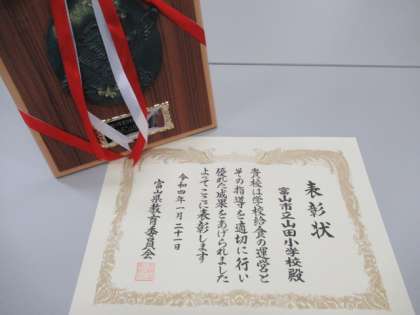 表彰状
富山市立山田小学校殿
貴校は学校給食の運営と
その指導を適切に行い
優れた成果をあげられました
よってここに表彰します
令和四年一月二十一日
富山県教育委員会